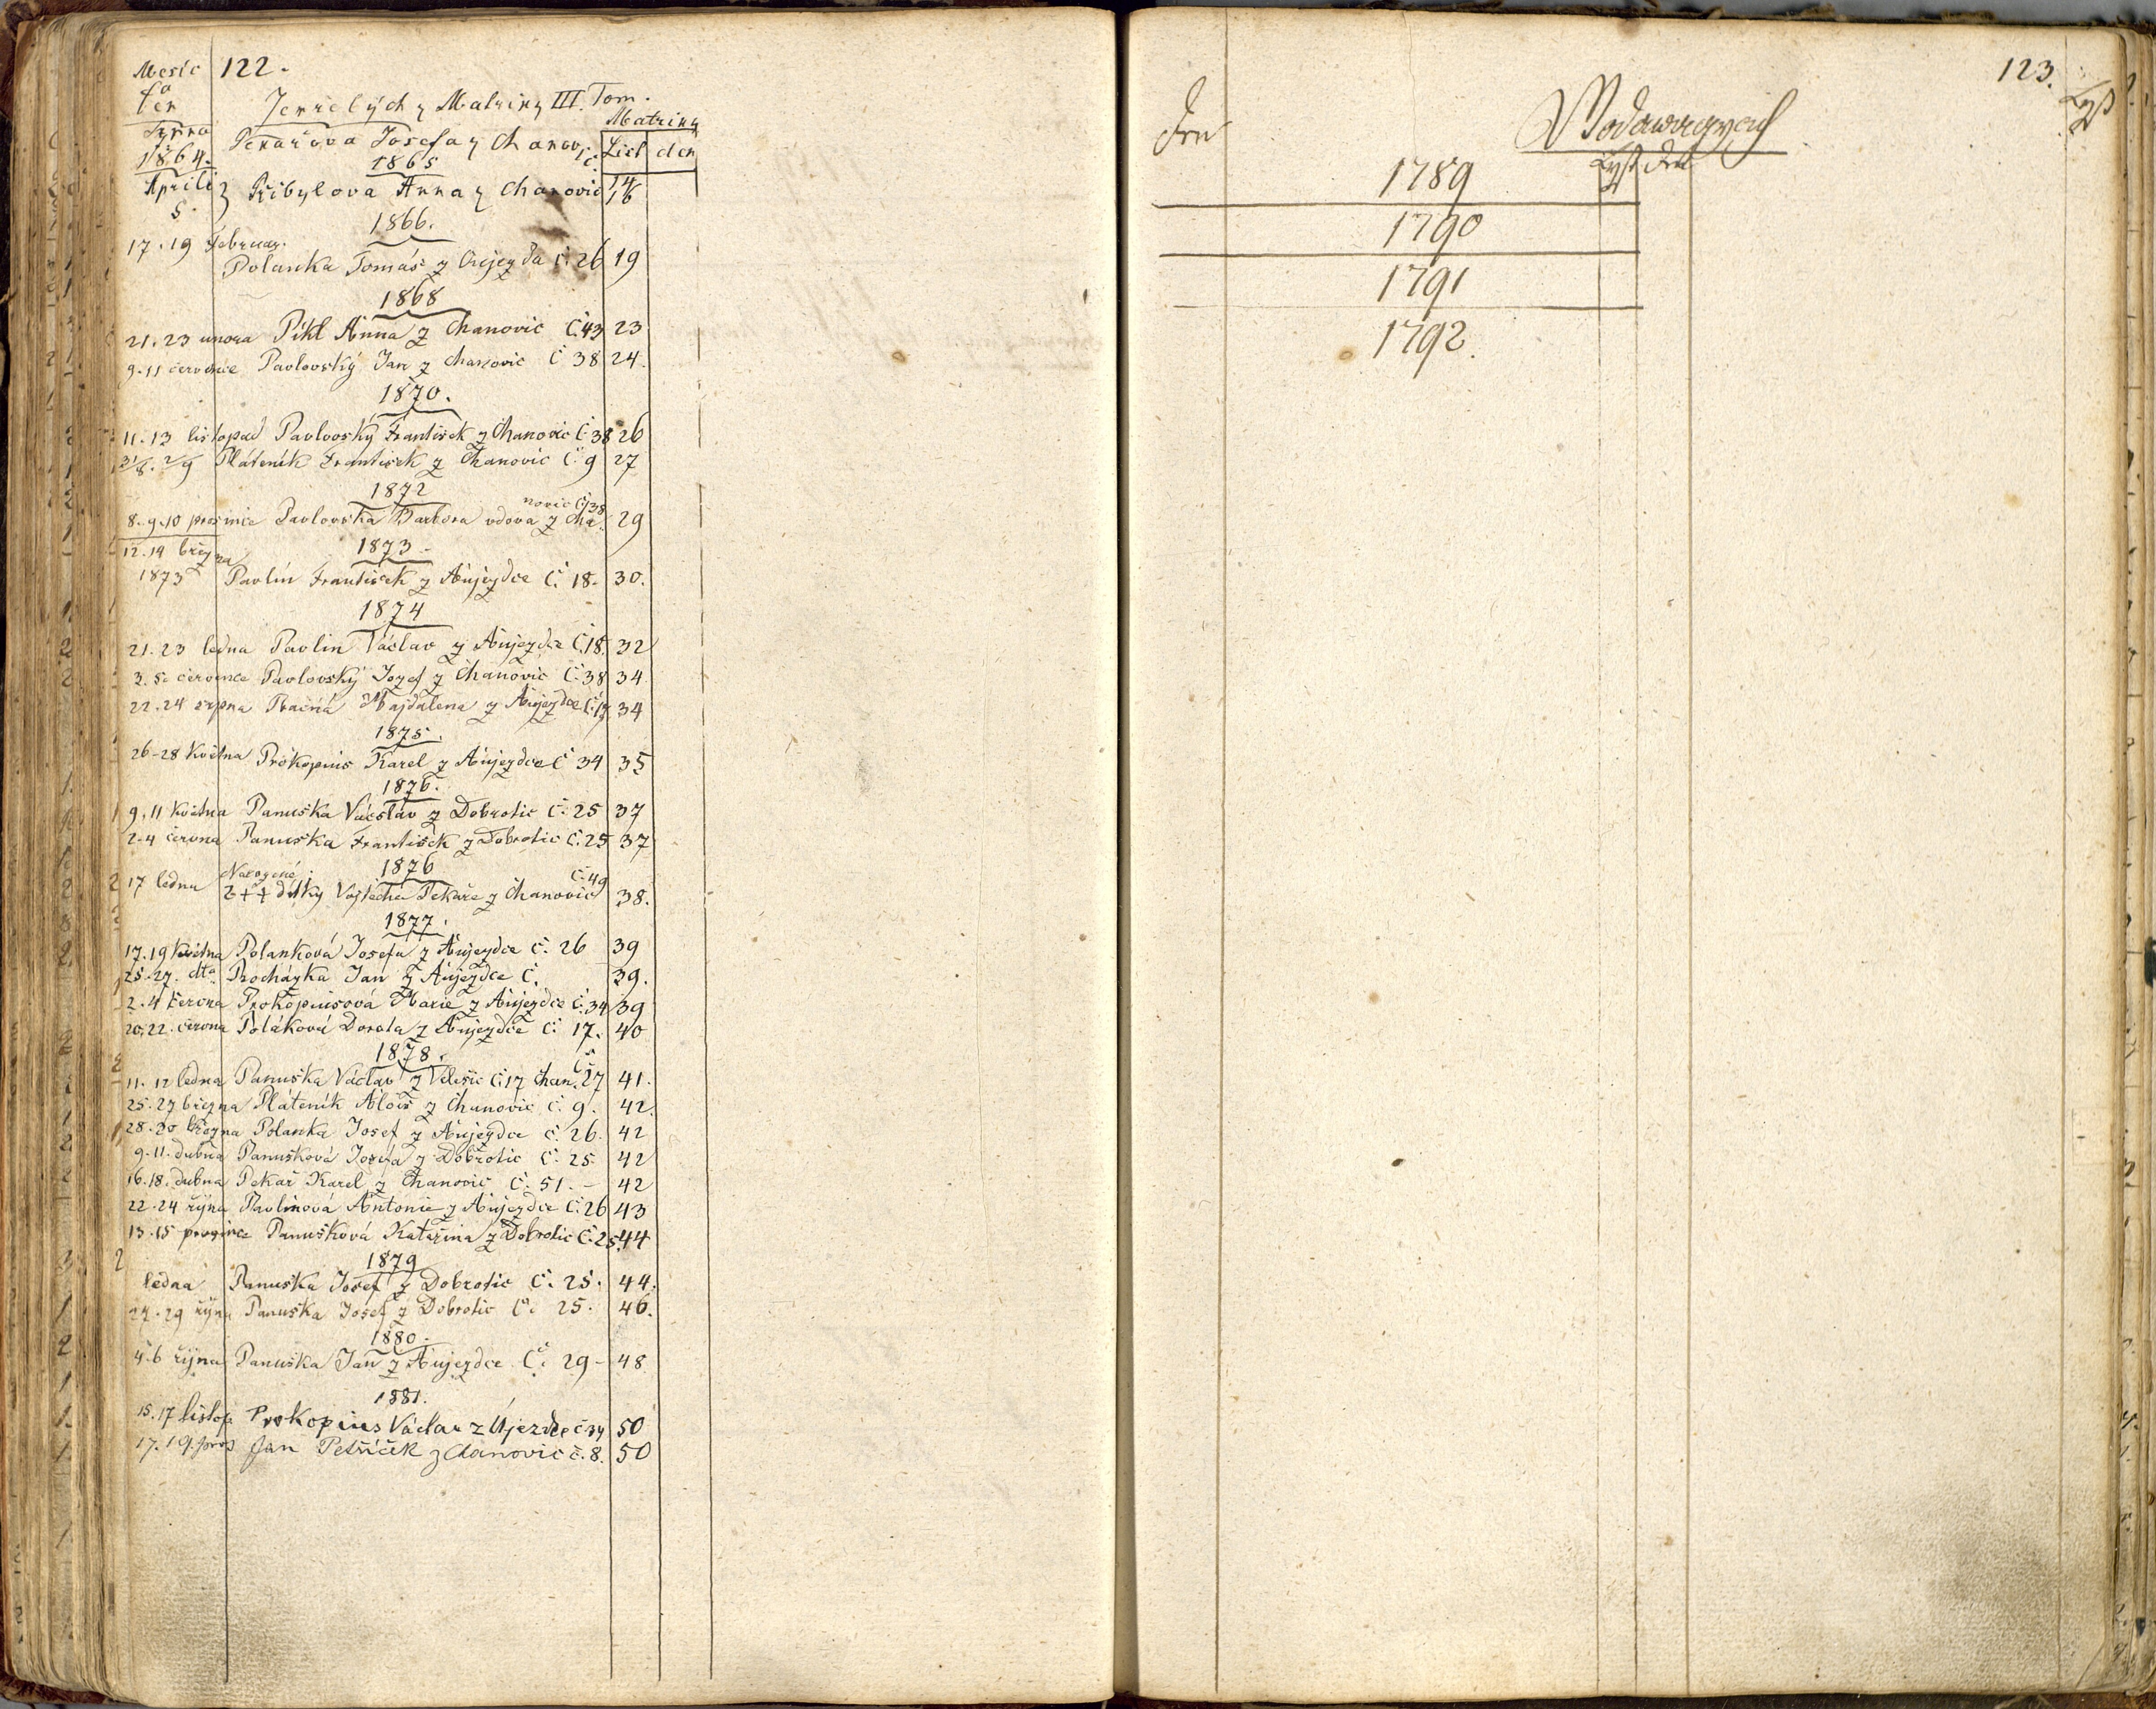 Mesíc 122.
Zemřelých z Matriky III. Tom.
Matriky
List den
Pekařova Josefa z Chanovic
1864.
1865
Aprili 5. Přibylova Anna z Chanovic 16
1866.
17. 19 Februar.
Polanka Tomáš z Oujezda č: 26 19
1868
21. 23 unora Pikl Anna z Chanovic Č. 43 23
9-11 července Pavlovský Jan z Chanovic Č 38 24.
1870.
11. 13 listopad Pavlovský František z Chanovic Č 38 26
31/8. 2/9 Pláteník František z Chanovic Č. 9 27
1872
8. 9. 10 prosince Pavlovská Barbora vdova z Cha- 29
novic Č 38
12. 14 března 1873.
1873 Pavlín František z Aujezdce Č. 18. 30.
1874
21. 23 ledna Pavlin Václav z Aujezdce Č. 18. 32
3. 5. července Pavlovský Jozef z Chanovic Č. 38 34.
22. 24 srpna Majdalena z Aujezdce Č. 17 34
1875.
26-28 Května Prokopius Karel z Aujezdce Č 34 35
1876.
9. 11 května Panuška Václav z Dobrotic Č. 25 37
2-4 června Panuška František z Dobrotic Č. 25 37
1876
17 ledna Č. 49
2 ++ dítky Vojtěcha Pekaře z Chanovic 38.
1877.
17. 19 května Polanková Josefa z Aujezdce Č. 26 39
25. 27. dto Procházka Jan z Aujezdce Č. 39.
2. 4 června Prokopiusová Marie z Aujezdce Č. 34 39
20. 22. června Poláková Dorota z Aujezdce Č. 17. 40
1878.
11. 12 ledna Panuška Václav z Č. 17 Chan. Č. 27 41.
25. 27 března Pláteník Alois z Chanovic Č. 9. 42.
28. 30 března Polanka Josef z Aujezdce Č. 26. 42
9. 11. dubna Panušková Josefa z Dobrotic Č. 25 42
16. 18. dubna Pekař Karel z Chanovic Č. 51. - 42
22. 24 října Pavlinová Antonie z Aujezdce Č. 26 43
13. 15 prosince Panušková Kateřina z Dobrotic Č. 25. 44
1879
ledna Panuška Josef z Dobrotic Č. 25. 44.
27. 29 října Panuška Josef z Dobrotic Č. 25. 46.
1880.
4. 6 října Panuška Jan z Aujezdce Č. 29 - 48
1881.
15. 17 listop. Prokopius Václav z Újezdce č. 34 50
17. 19. pros Jan Petříček z Chanovic č. 8. 50
123.
Den Lyst
Lyst Den
1789
1790
1791
1792.